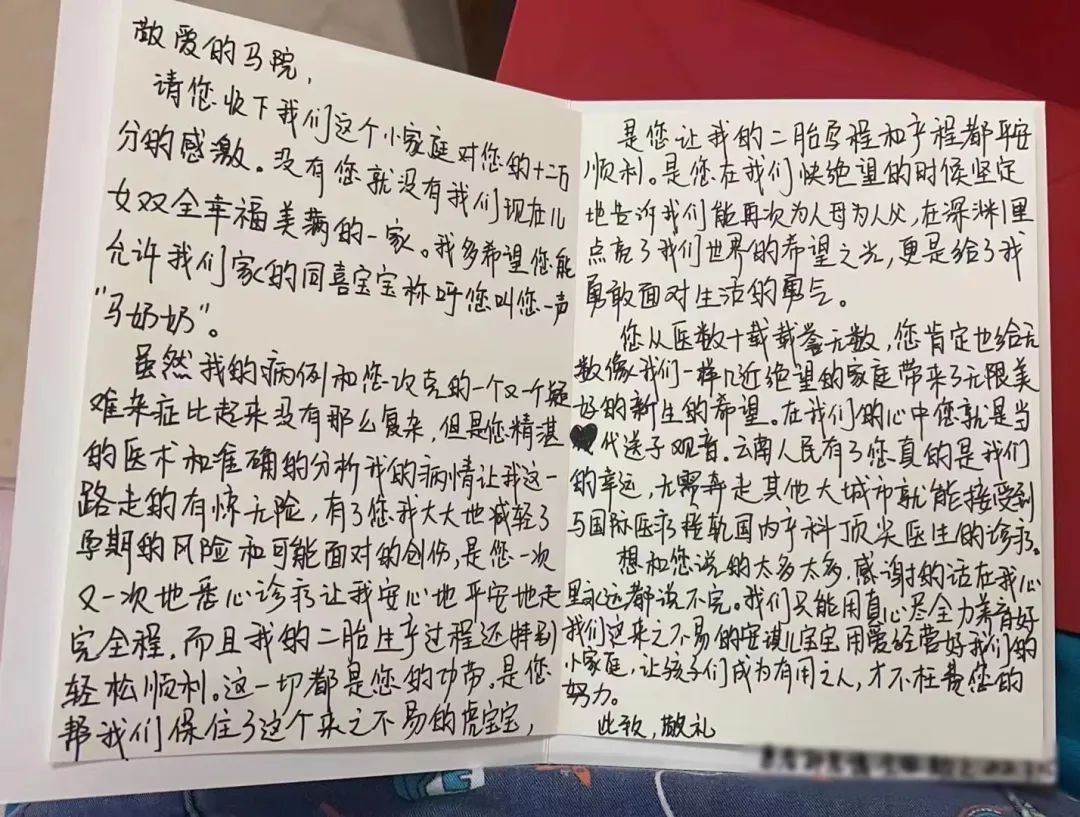 敬爱的马院，
请您收下我们这个小家庭对您的十二万
分的感激。没有您就没有我们现在儿
女双全幸福美满的一家。我多希望您能
允许我们家的同喜宝宝称呼您叫您一声
“马奶奶”。
虽然我的病例和您攻克的一个又一个疑
难杂症比起来没有那么复杂，但是您精湛
的医术和准确的分析我的病情让我这一
路走的有惊无险，有了您我大大地减轻了
孕期的风险和可能面对的创伤，是您一次
又一次地悉心诊疗让我安心地平安地走
完全程，而且我的二胎生产过程还特别
轻松顺利。这一切都是您的功劳。是您
帮我们保住了这个来之不易的虎宝宝，
是您让我的二胎孕程和产程都平安
顺利。是您在我们快绝望的时候坚定
地告诉我们能再次为人母为人父，在深渊里
点亮了我们世界的希望之光，更是给了我
勇敢面对生活的勇气。
您从医数十载载誉无数，您肯定也给无
数像我们一样几近绝望的家庭带来了无限美
好的新生的希望。在我们的心中您就是当
代送子观音。云南人民有了您真的是我们
的幸运，无需奔走其他大城市就能接受到
与国际医疗接轨国内产科顶尖医生的诊疗。
想和您说的太多太多，感谢的话在我心
里永远都说不完。我们只能用真心尽全力养育好
我们这来之不易的安琪儿宝宝用爱经营好我们的
小家庭，让孩子们成为有用之人，才不枉费您的
努力。
此致，敬礼